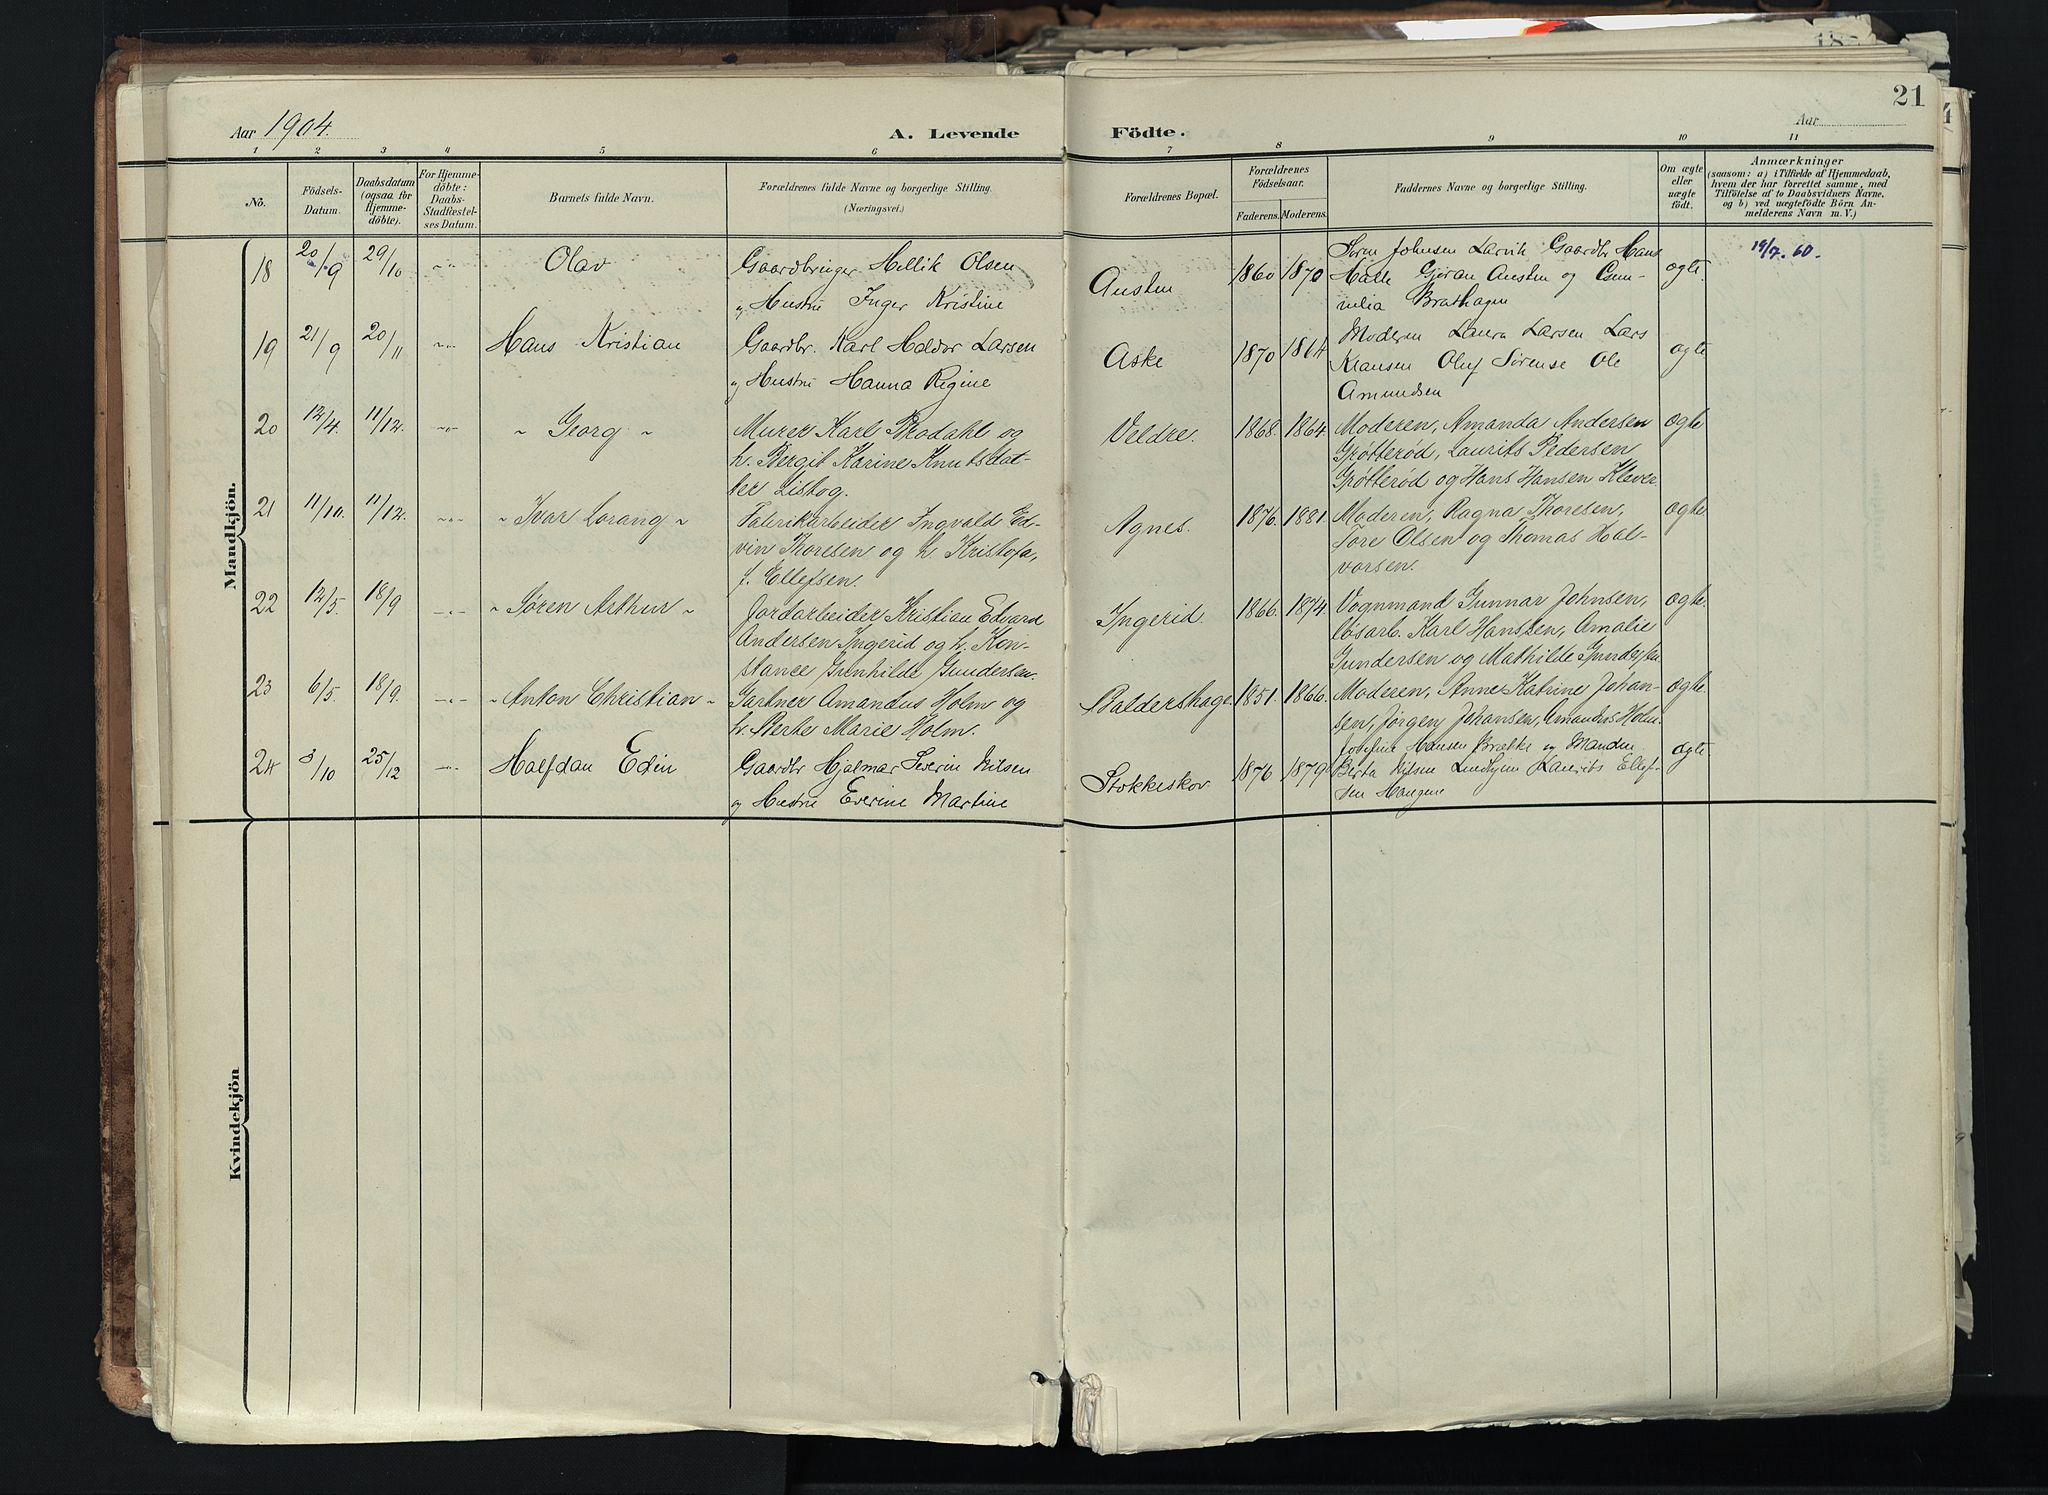 21
Aar 1904.
A. Levende
Födte.
Aar
1 2 3 4 5 6 7 8 9 10 11
No.
Födsels-
Datum.
Daabsdatum
(ogsaa for
Hjemme-
döbte).
For Hjemme-
döbte:
Daabs-
Stadfæstel-
ses Datum.
Barnets fulde Navn.
Forældrenes fulde Navne og borgerlige Stilling.
(Næringsvei.)
Forældrenes Bopæl.
Forældrenes
Födselsaar.
Faderens. Moderens.
Faddernes Navne og borgerlige Stilling.
Om ægte
eller
uægte
födt.
Anmærkninger
(saasom: a) i Tilfælde af Hjemmedaab,
hvem der har forrettet samme, med
Tilföielse af to Daabsvidners Navne.
og b) ved uægtefödte Börn An-
melderens Navn m. V.)
Mandkjön.
18 20/9 29/10 Olav
Gaardbruger Hellik Olsen
og Hustru Inger Kristine
Austen 1860 1870
Sören Johnsen Larvik Gaardbr Hans
Halle Gjöran Austen og
Brathagen
ægte
19/7. 60.
19 21/9 20/11 Hans Kristian
Gaardbr. Karl Haldor Larsen
og Hustru Hanna Regine
Aske 1870 1864
Moderen Laura Larsen Lars
Klausen Oluf Sørense Ole
Amundsen
ægte
20 12/4. 11/12. " Georg "
Murer Karl Thodahl og
h. Bergit Karine Knutsdat-
ter Liskog.
Veldre. 1868. 1864.
Moderen, Amanda Andersen
Grøtterød, Laurits Pedersen
Grøtterød og Hans Hansen Klever.
ægte
21 11/10. 11/12. " Ivar Lorang "
Fabrikarbeider Ingvald Ed-
vin Thoresen og h. Kristofa,
f. Ellefsen.
Agnes. 1876. 1881.
Moderen, Ragna Thoresen,
Tore Olsen og Thomas Hal-
vorsen.
ægte
22 12/5. 18/9 " Søren Arthur "
Jordarbeider Kristian Edvard
Andersen Ingerid og h. Kon-
stance Grenhilde Gundersen.
Ingerid. 1866. 1874.
Vognmand Gunnar Johnsen,
løsarb. Karl Hanssen, Amalie
Gundersen og Mathilde Gundersen
ægte.
23 6/5. 18/9. " Anton Christian "
Gartner Amandus Holm og
h. Berte Marie Holm.
Baldershage. 1851. 1866.
Moderen, Anne Katrine Johan-
sen, Jørgen Johansen, Amandus Holm.
ægte.
24 3/10 25/12 Halfdan Edin
Gaardbr Hjalmar Severin Nilsen
og Hustru Everine Martine
Stokkeskov 1876 1879
Josefine Hansen Brække og Manden
Berta Nilsen Laurits Ellef-
sen Haugene
ægte
Kvindekjön